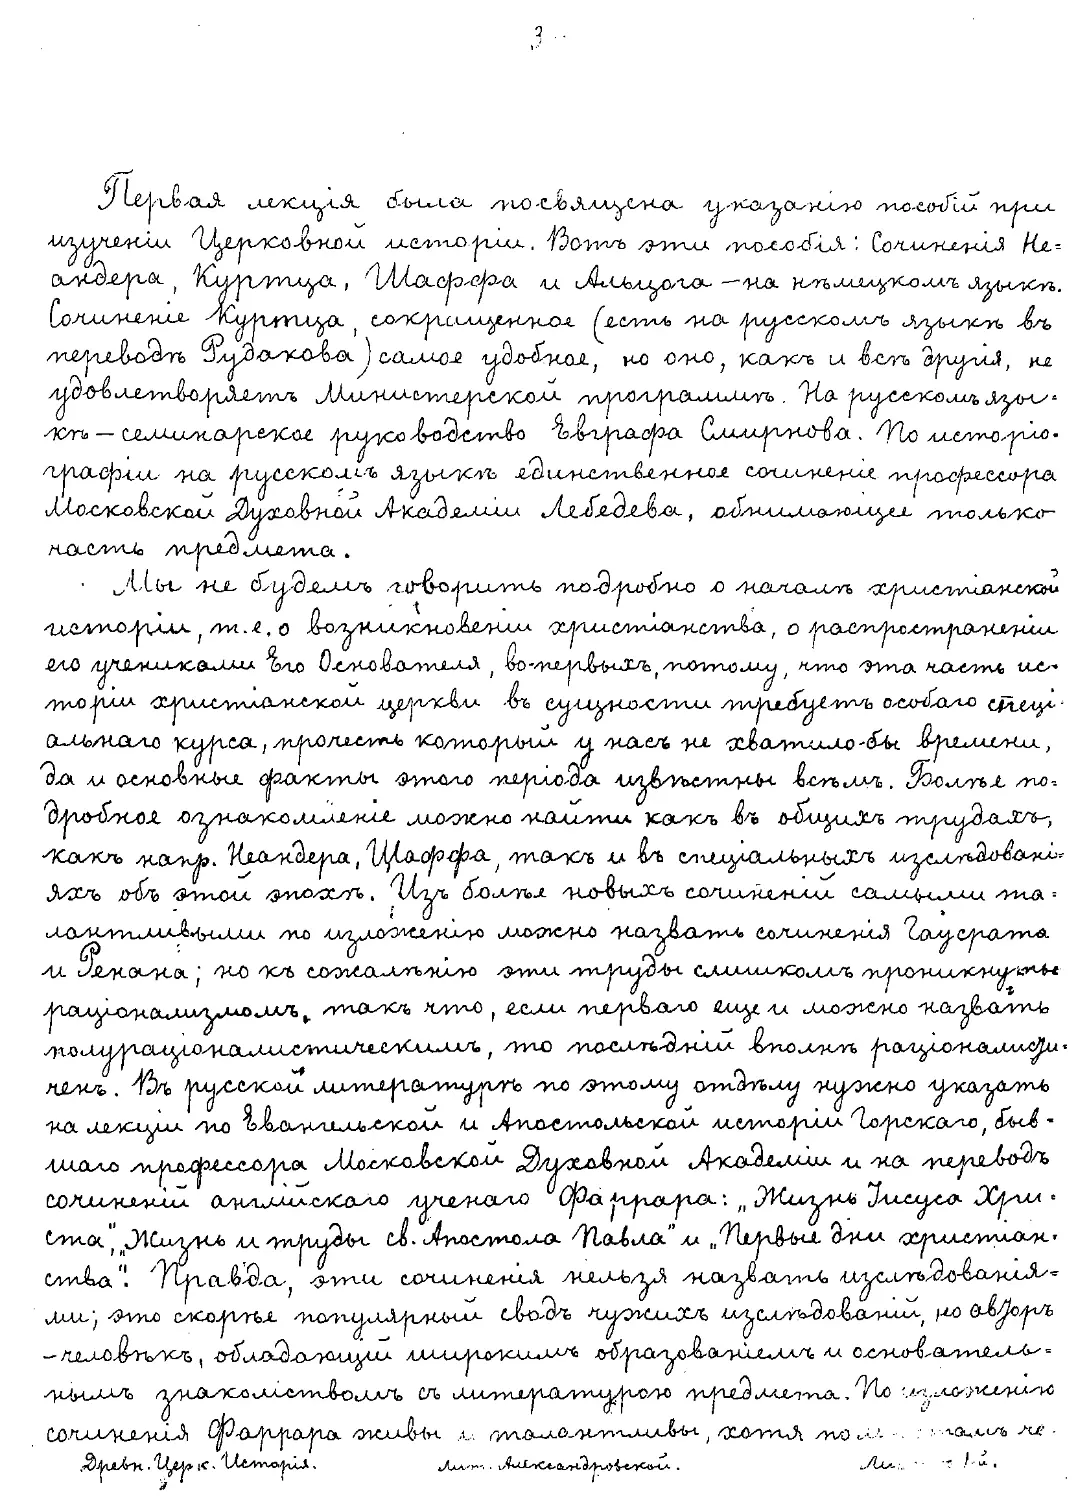 3
Первая лекція была посвящена указанію пособій при
изученіи Церковной исторіи. Вотъ эти пособія: Сочиненія Не=
андера, Куртца, Шаффа и Альцога – на нѣмецкомъ языкѣ.
Сочиненіе Куртца, сокращенное (есть на русскомъ языкѣ въ
переводѣ Рудакова) самое удобное, но оно, какъ и всѣ другія, не
удовлетворяетъ Министерской программѣ. На русскомъ язы=
кѣ – семинарское руководство Евграфа Смирнова. По исторіо-
графіи на русскомъ языкѣ единственное сочиненіе профессора
Московской Духовной Академіи Лебедева, обнимающее только
часть предмета.
Мы не будемъ говорить подробно о началѣ христіанской
исторіи, т.е. о возникновеніи христіанства, о распространеніи
его учениками Его Основателя, во-первыхъ, потому, что эта часть ис-
торіи христіанской церкви въ сущности требуетъ особаго спеці-
альнаго курса, прочесть который у насъ не хватило-бы времени,
да и основные факты этого періода извѣстны всѣмъ. Болѣе по=
дробное ознакомленіе можно найти какъ въ общихъ трудахъ,
какъ напр. Неандера, Шаффа, такъ и въ спеціальныхъ изслѣдовані=
яхъ объ этой эпохѣ. Изъ болѣе новыхъ сочиненій самыми та=
лантливыми по изложенію можно назвать сочиненія Гаусрата
и Ренана; но къ сожалѣнію эти труды слишкомъ проникнуты
раціонализмомъ, такъ что, если перваго еще и можно назвать
полураціоналистическимъ, то послѣдній вполнѣ раціоналисти-
ченъ. Въ русской литературѣ по этому отдѣлу нужно указать
на лекціи по Евангельской и Апостольской исторіи Горскаго, быв-
шаго профессора Московской Духовной Академіи и на переводъ
сочиненій англійскаго ученаго Фаррара: „Жизнь Іисуса Хри-
ста", „Жизнь и труды св. Апостола Павла" и „Первые дни христіан-
ства". Правда, эти сочиненія нельзя назвать изслѣдованія=
ми; это скорѣе популярный сводъ чужихъ изслѣдованій, но авторъ
– человѣкъ, обладающій широкимъ образованіемъ и основатель=
нымъ знакомствомъ съ литературою предмета. По изложенію
сочиненія Фаррара живы и талантливы, хотя че-
Древн. Церк. Исторія. Лит. Александровской.